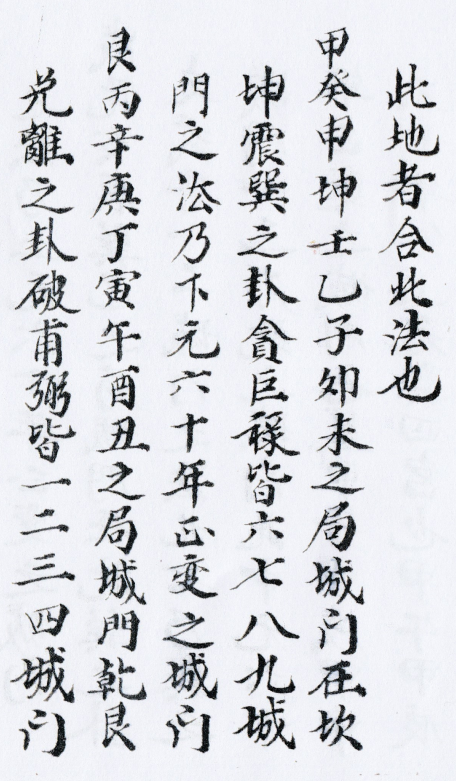 此地者合此法也
甲癸申坤壬乙子卯未之局城门在坎
坤震巽之卦貪巨祿皆六七八九城
門之法乃下元六十年正变之城门
艮丙辛庚丁寅午酉丑之局城門乾艮
兌離之卦破甫弼皆一二三四城门